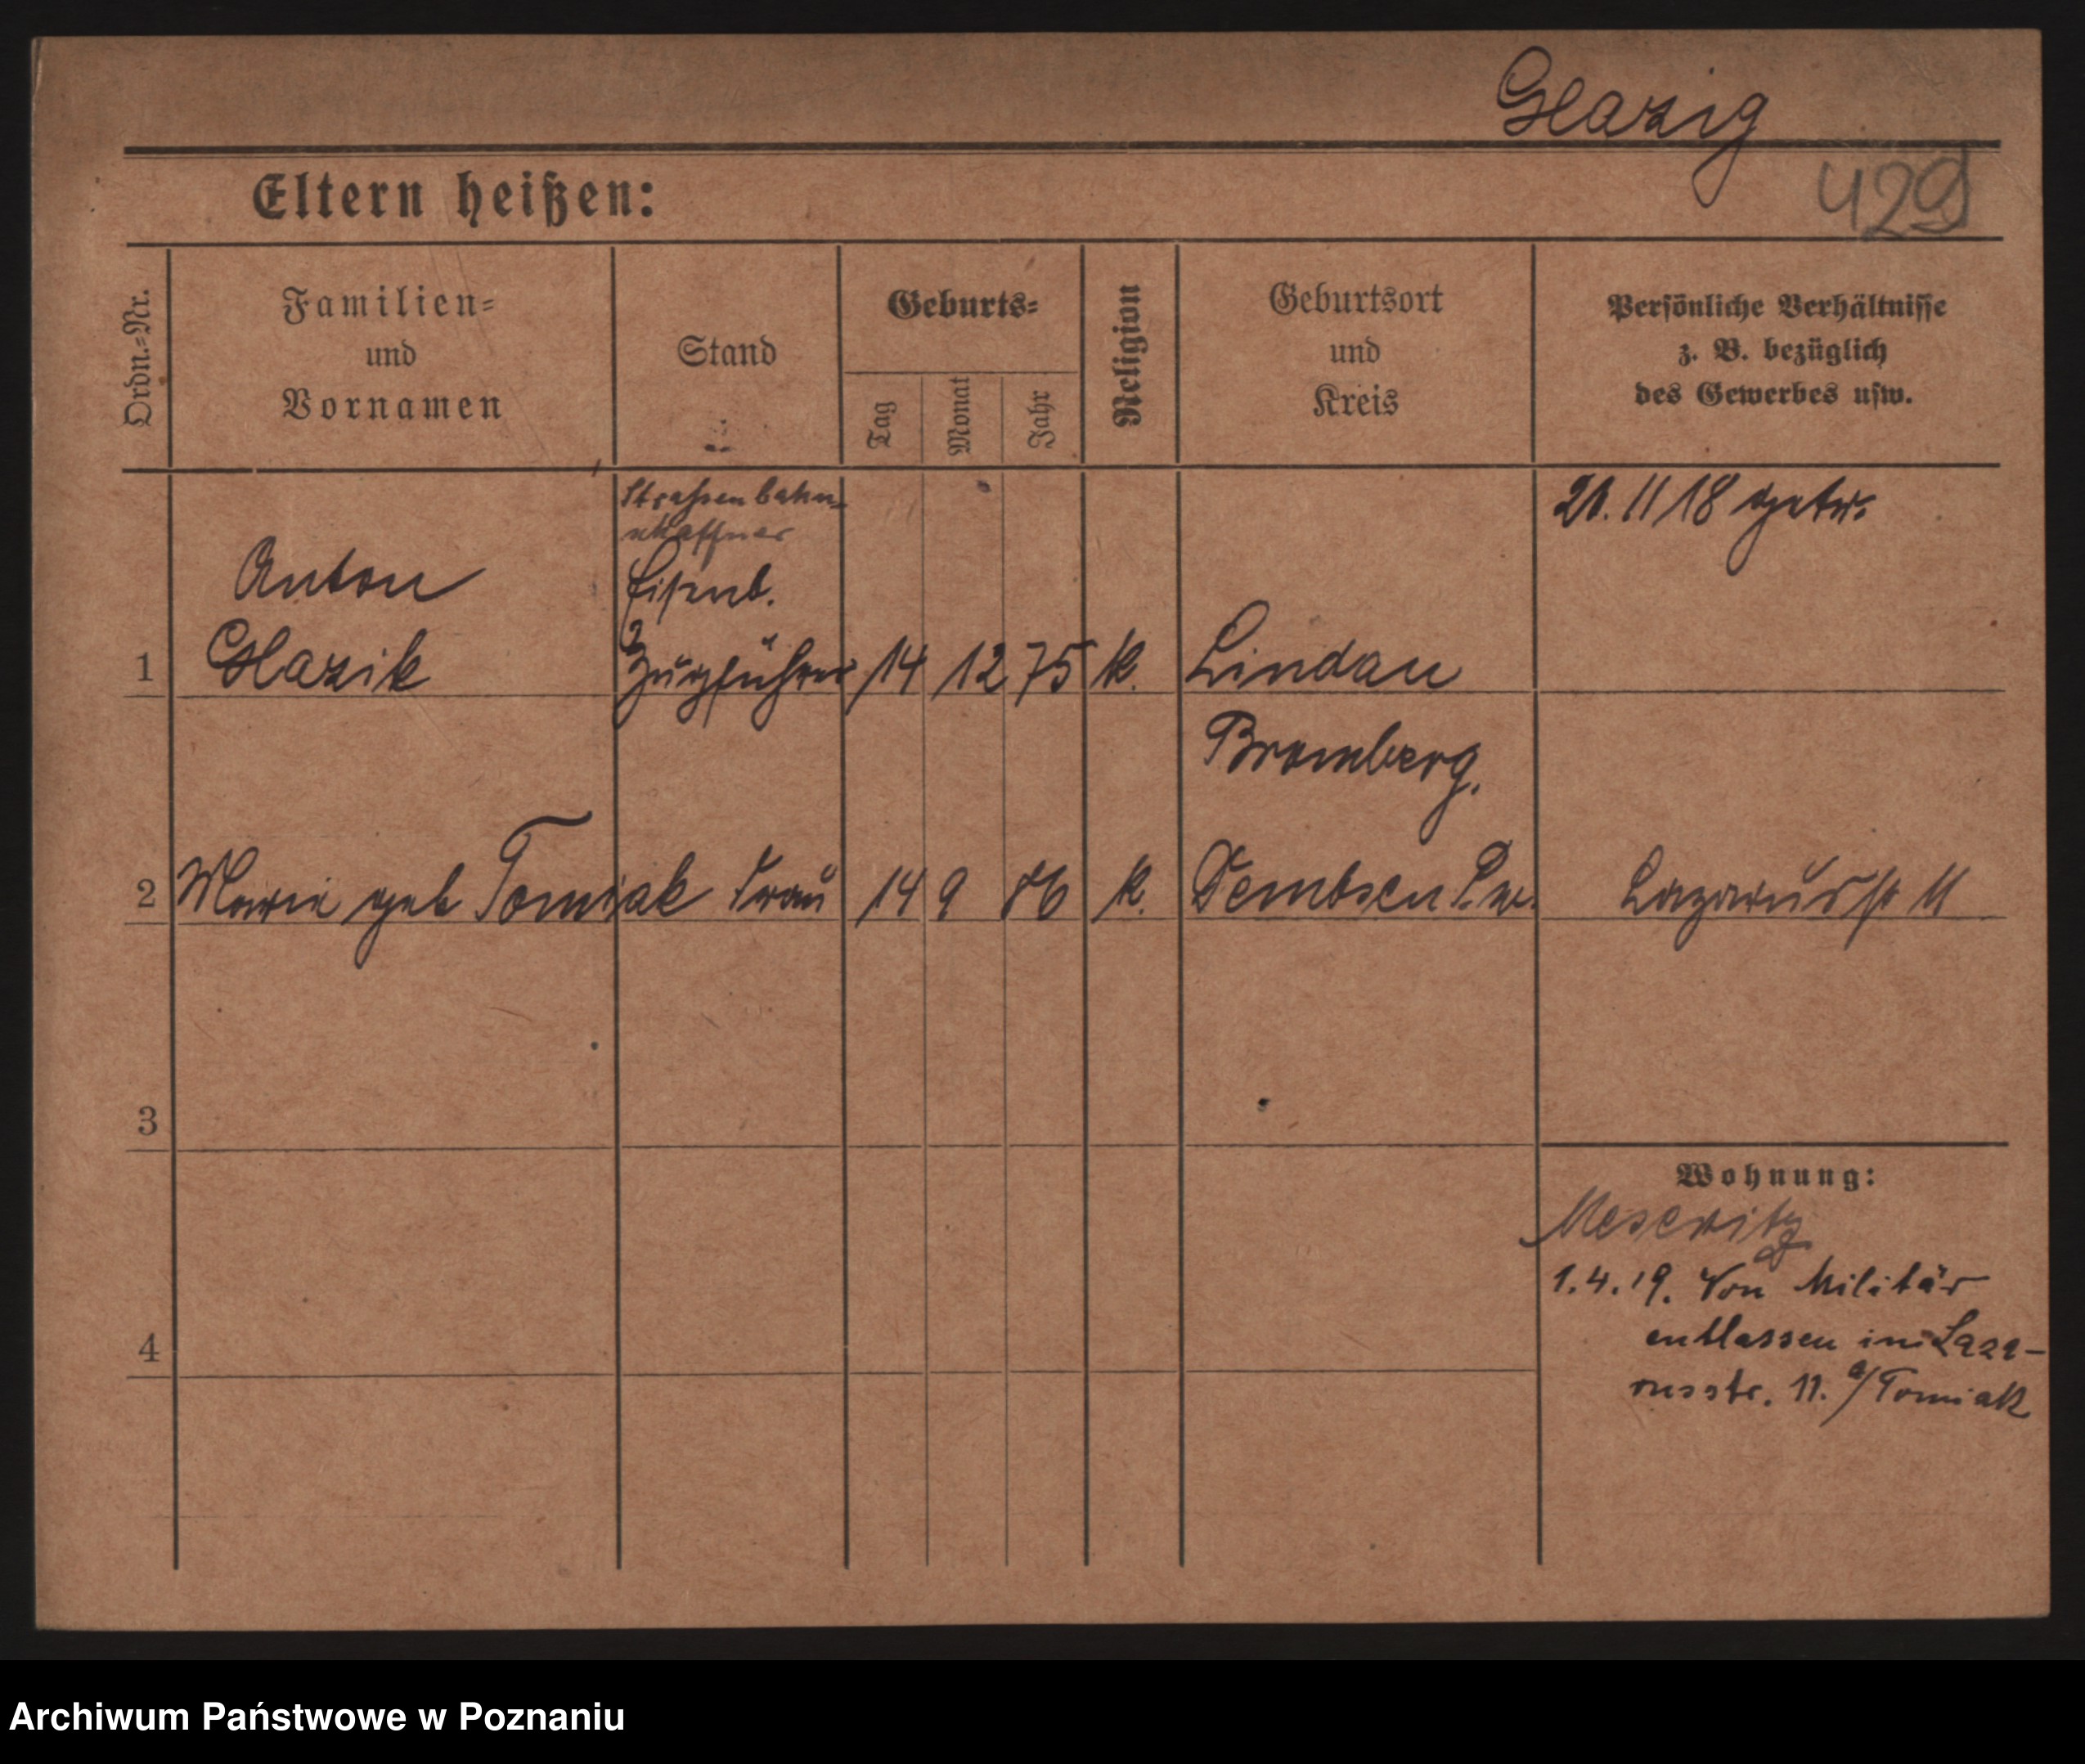 Glazig
429
Eltern heißen:
Ordn.-Nr.
Familien-
und
Vornamen
Stand
Geburts-
Tag
Monat
Jahr
Religion
Geburtsort
und
Kreis
Persönliche Verhältnisse
z. B. bezüglich
des Gewerbes usw.
Strassenbahn-
schaffner
20. 11 18 getr.
Anton
Eisenb.
1 Glazik Zugführer 14 12 75 k. Lindau
Bromberg.
2 Marie geb Tomiak Frau 14 9 86 k. Dembsen P. W. Lazarusstr 11
3
Wohnung:
Meseritz
1.4.19. Von Militär
entlassen in Laza-
4
russtr. 11. b/Tomiak
Archiwum Państwowe w Poznaniu